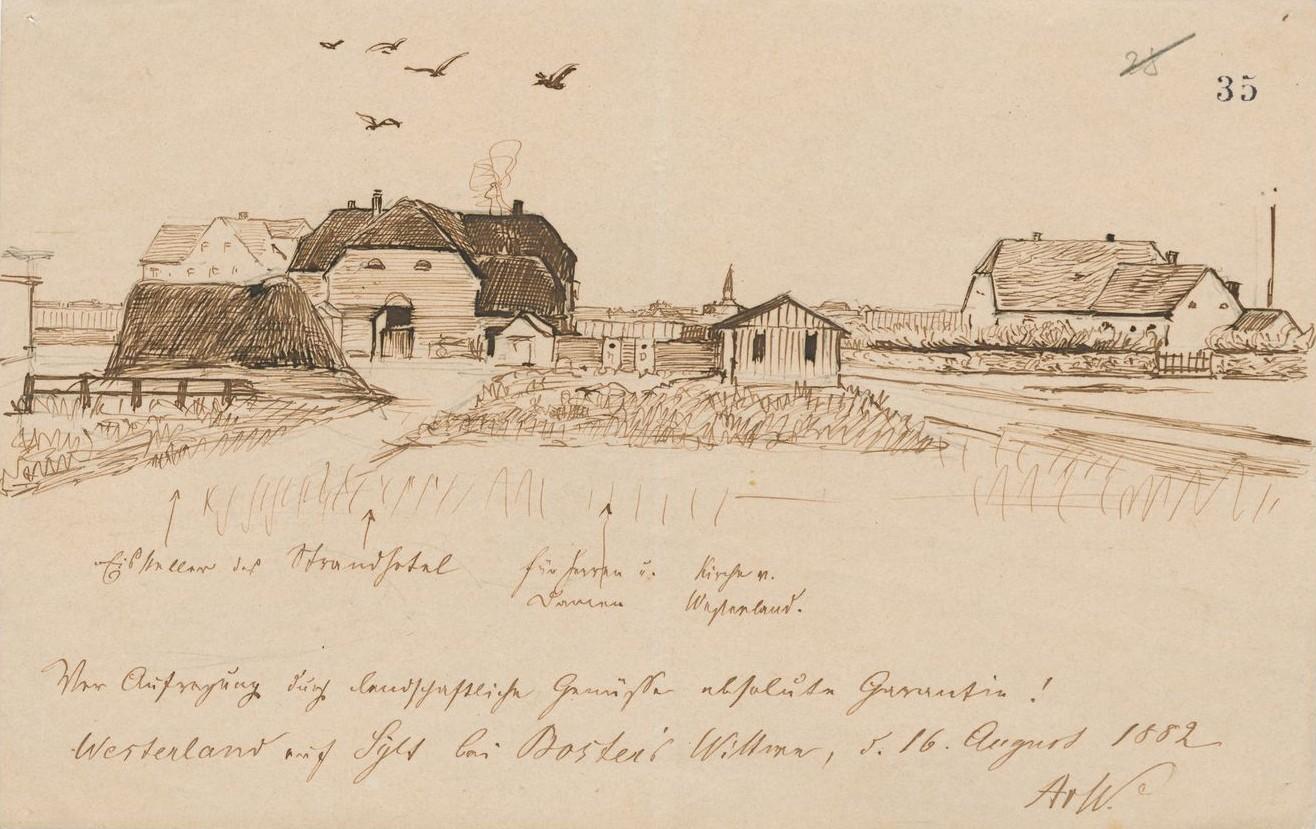 28
35
Eiskeller des Strandhotel
für Herren u.
Damen
Kirche v.
Westerland.
Vor Aufregung durch landschaftliche Genüsse absolute Garantie!
Westerland auf Sylt bei Boster's Wittwe, d. 16. August 1882
AvW.